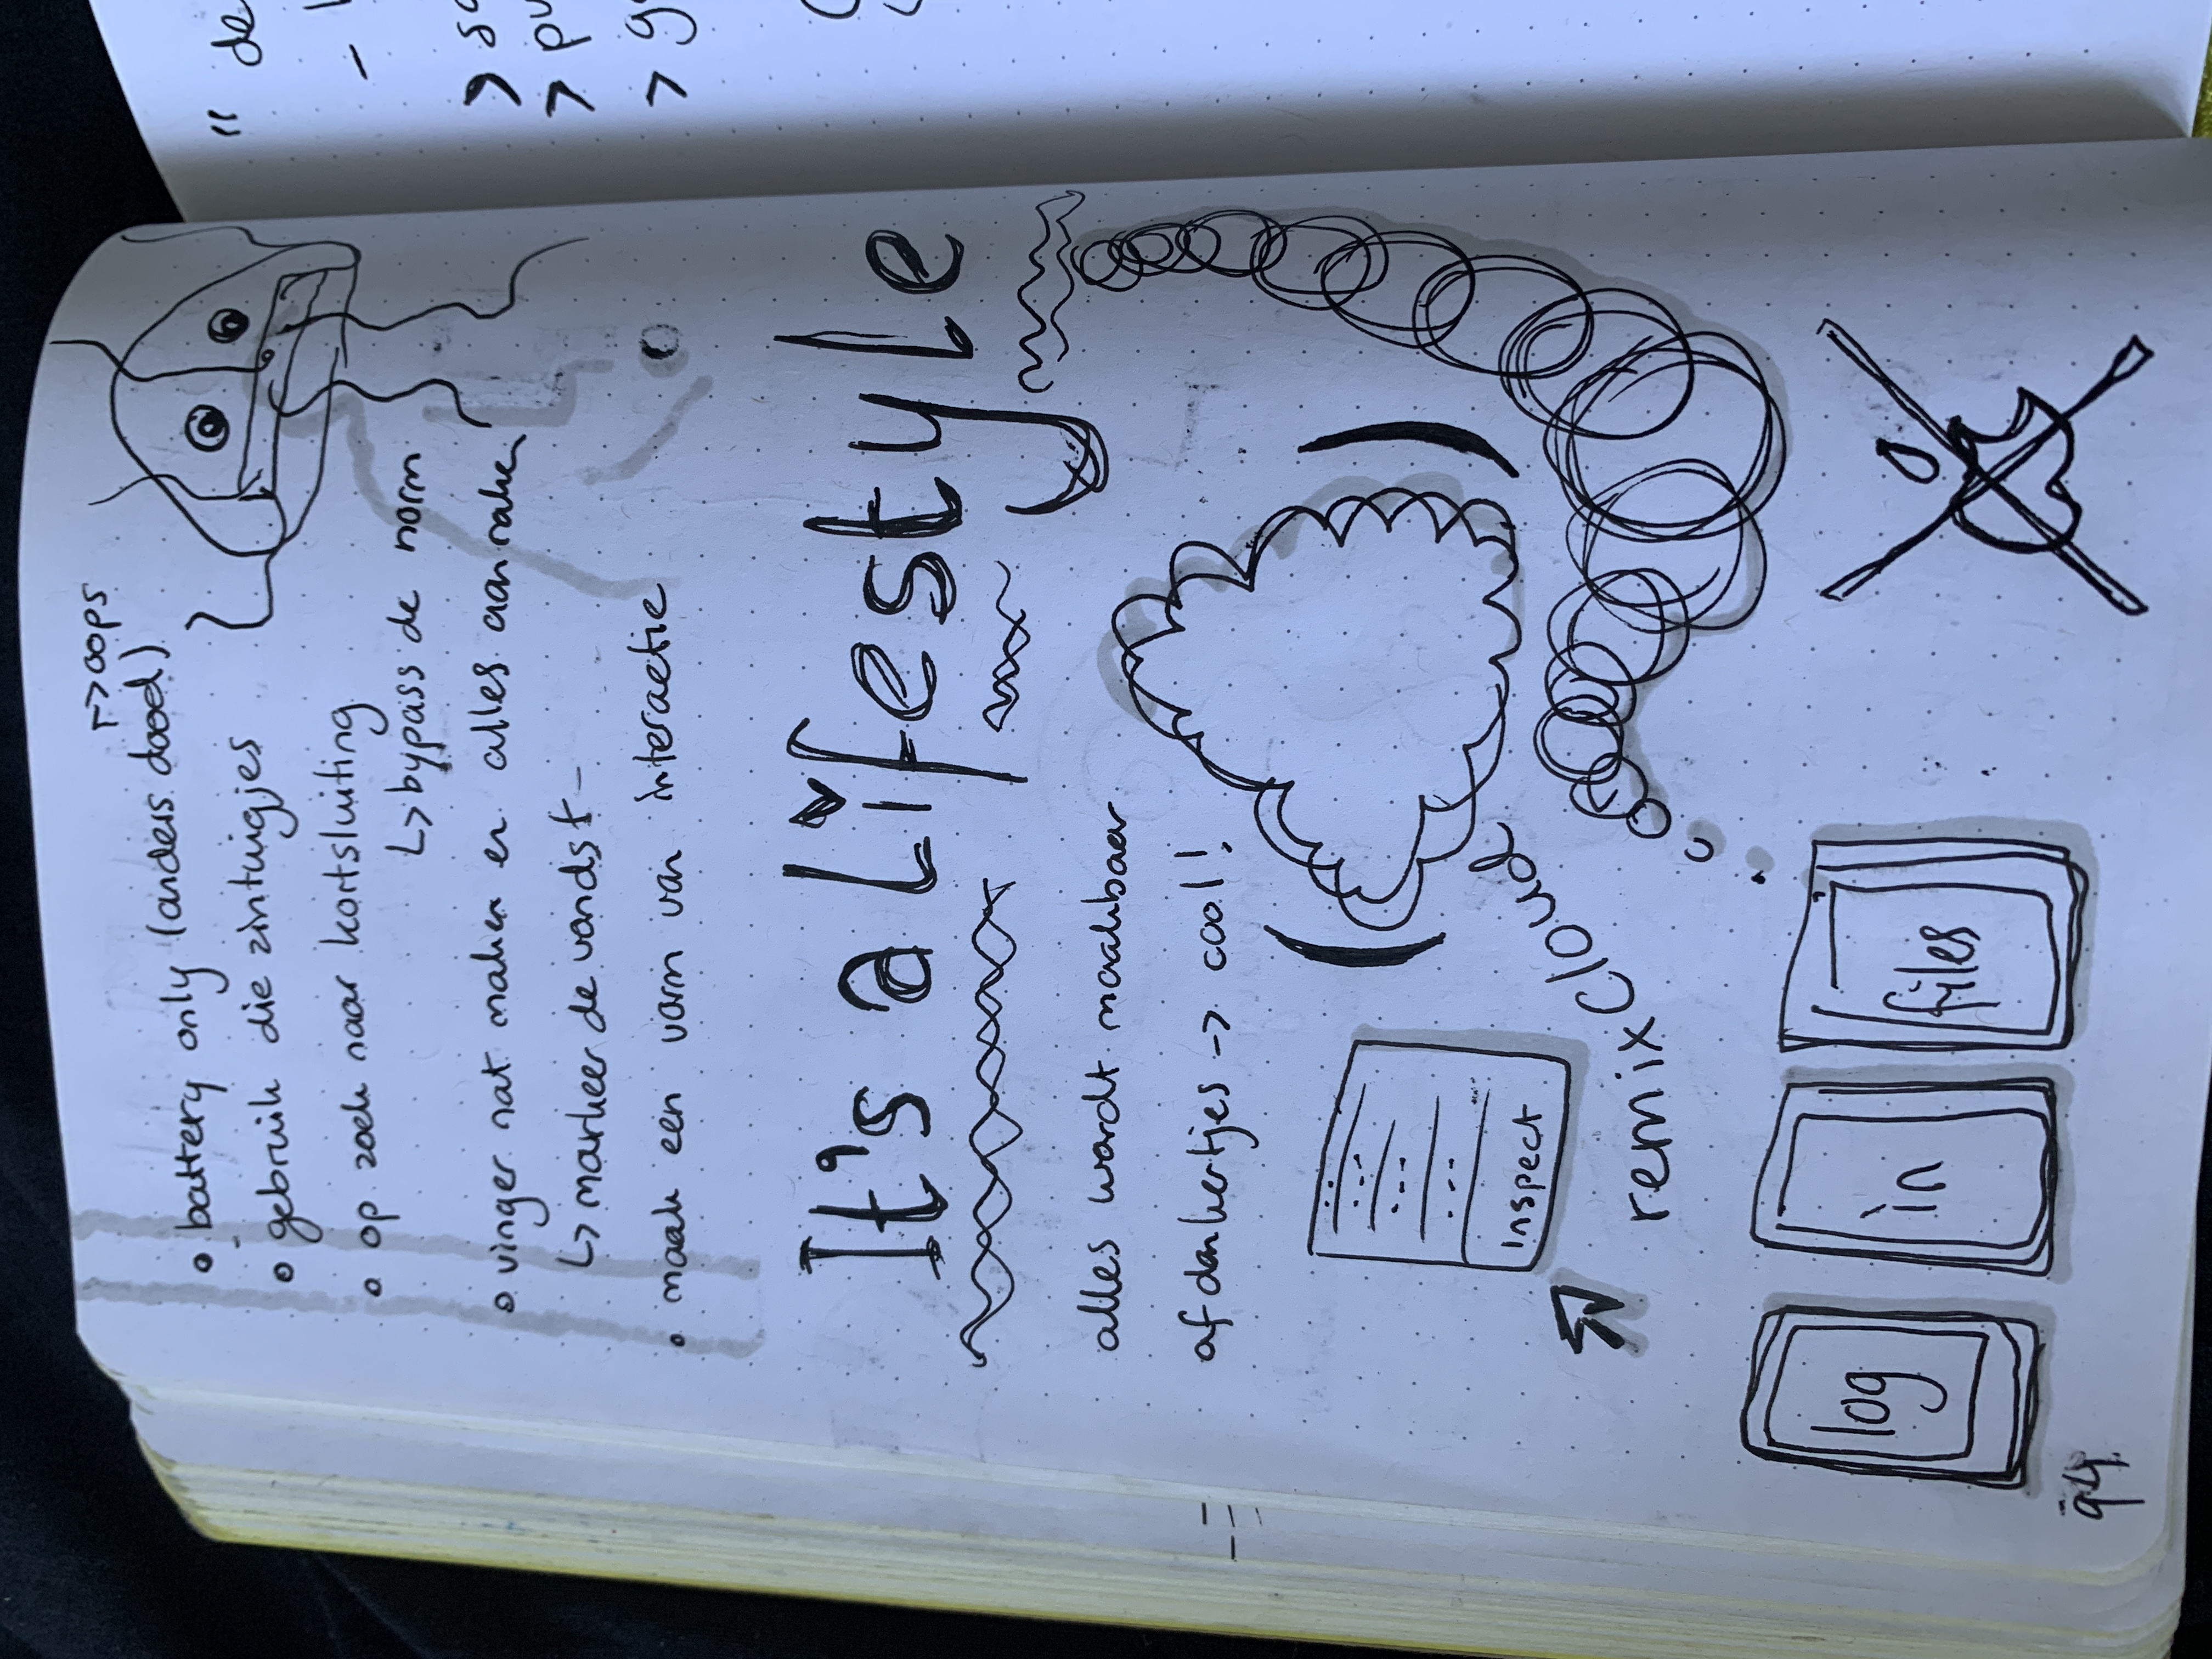 ↱> oops
• battery only (anders dood)
• gebruik die zintuigjes
• op zoek naar kortsluiting
↳ bypass de norm
• vinger nat maken en alles aanraken
↳ markeer de vondst
• maak een vorm van interactie
It's a lifestyle
alles wordt maakbaar
afdankertjes -> cool!
inspect
remixCloud
log
in
files
94
" de
>
>
>